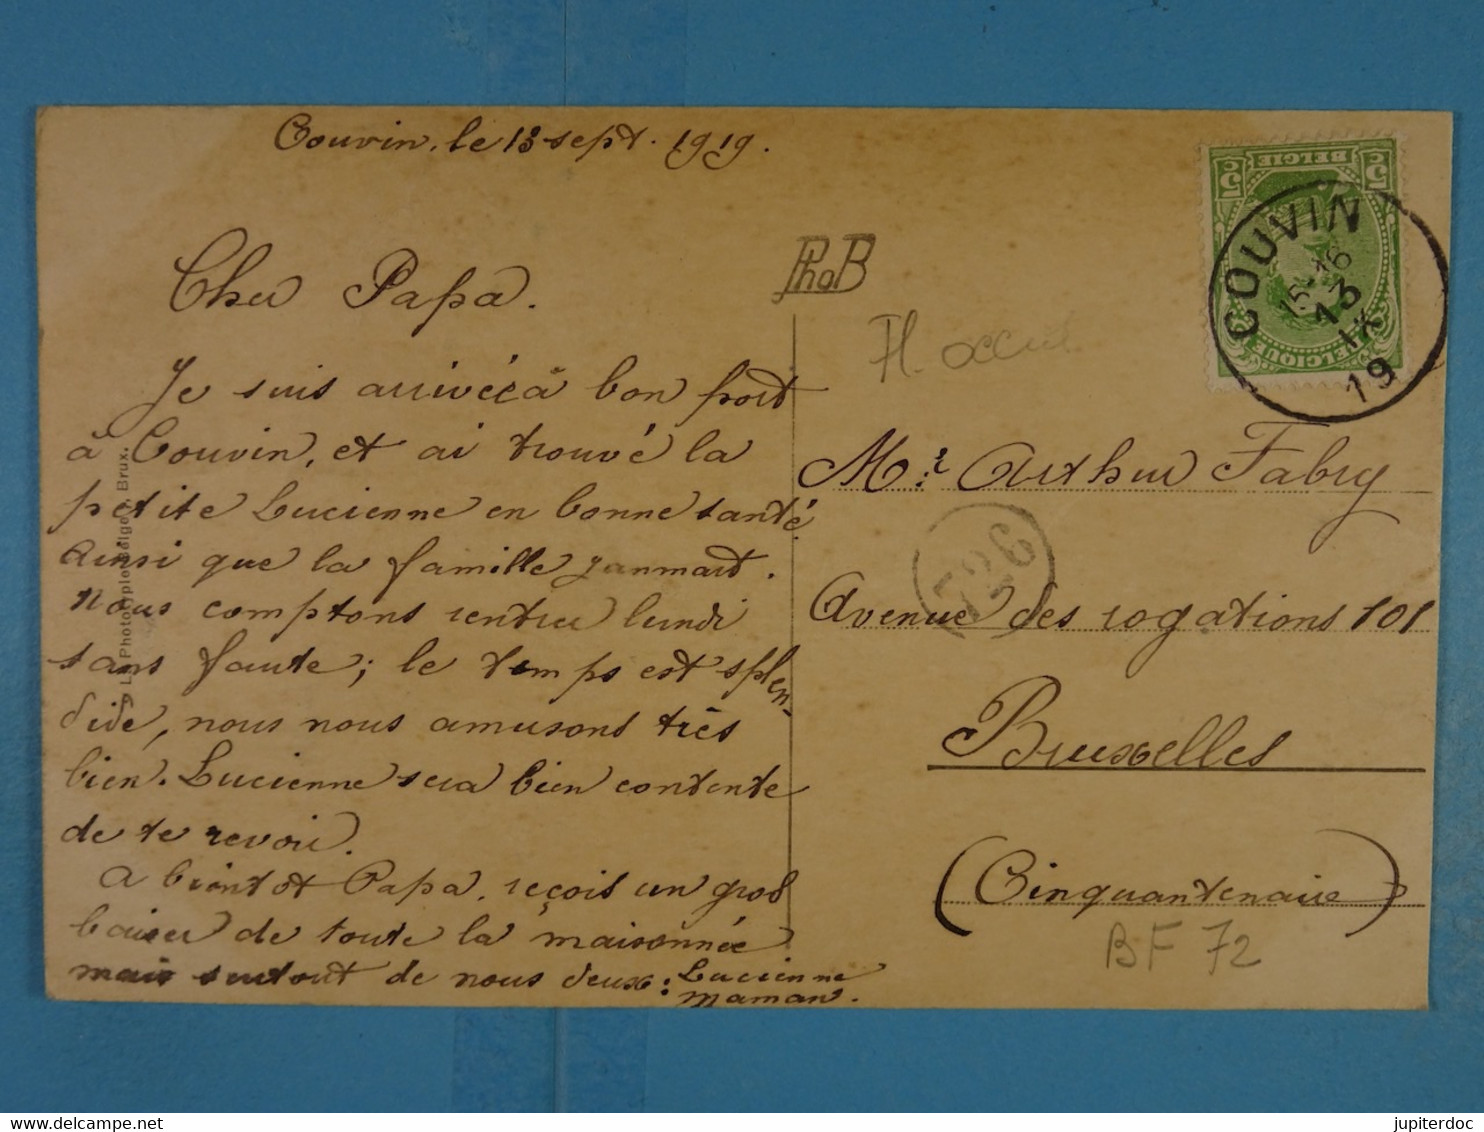 Couvin, le 13 sept. 1919.
Cher Papa.
Je suis arrivée à bon port
à Couvin, et ai trouvé la
petite Lucienne en bonne santé
ainsi que la famille Janmart.
Nous comptons rentrer lundi
sans faute; le temps est splen-
dide, nous nous amusons très
bien. Lucienne sera bien contente
de te revoir.
A bientôt Papa, reçois un gros
baiser de toute la maisonnée
mais surtout de nous deux: Lucienne
Maman.
PhoB
Fl.
Mr. Arthur Fabry
Avenue des rogations 101
Bruxelles
(Cinquantenaire)
BF 72
726
5c BELGIE 5c
BELGIQUE
COUVIN
15-16
13
IX
19
Brux.
jupiterdoc